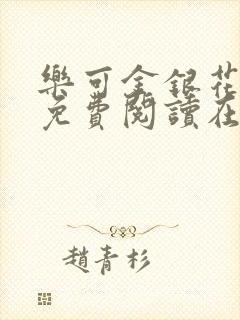 樂可金銀花
免費閱讀在
趙青杉